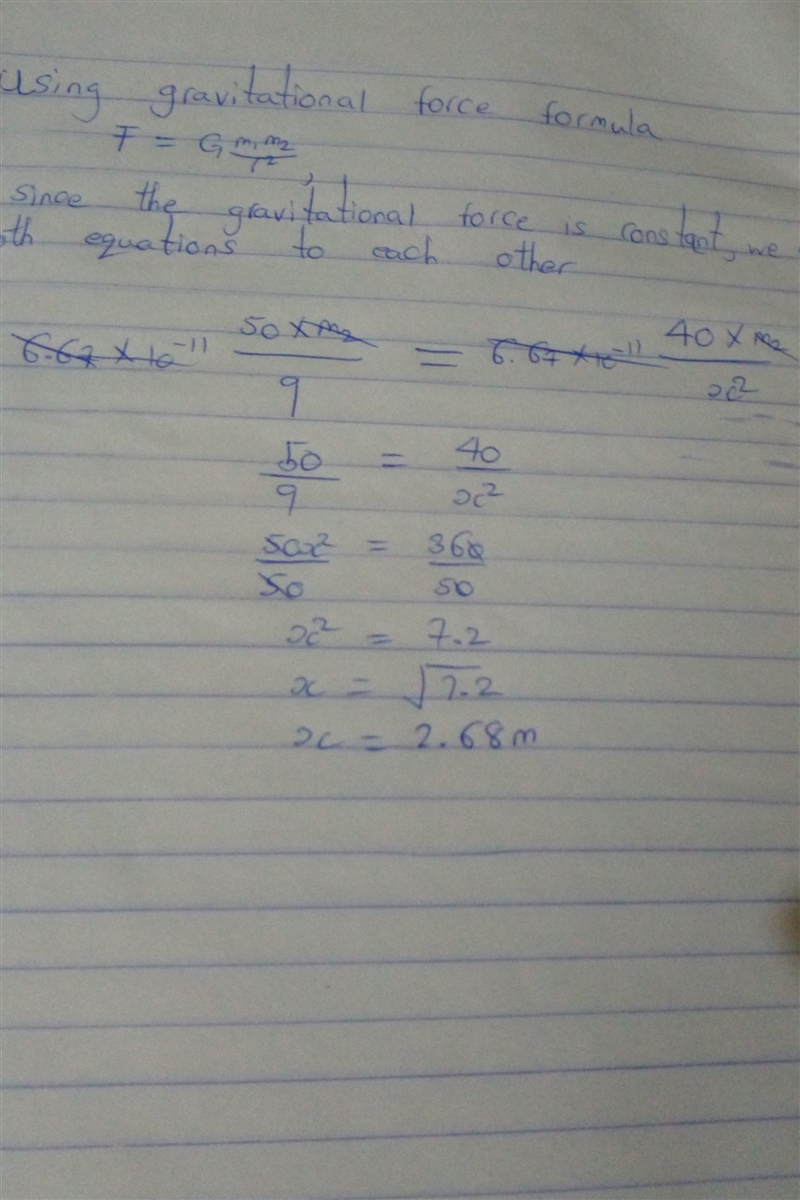 Using gravitational force formula
F = G m₁m₂/r²,
since the gravitational force is constant, we
equations to each other
6.67 × 10⁻¹¹ 50 × m₂/9 = 6.67 × 10⁻¹¹ 40 × m₂/x²
50/9 = 40/x²
50x²/50 = 360/50
x² = 7.2
x = √7.2
x = 2.68m